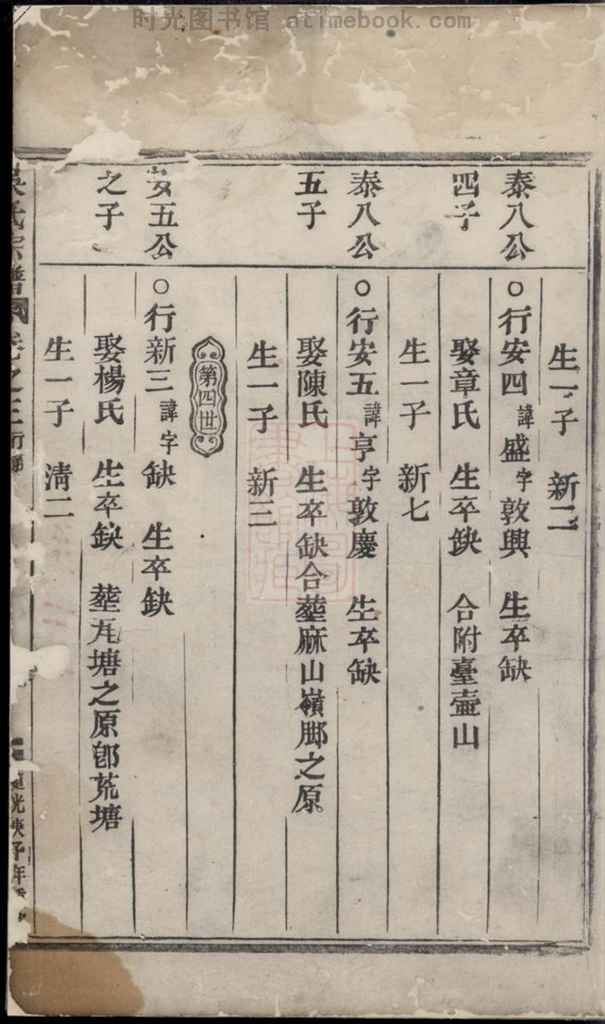 时光图书馆 atimebook.com
生一子 新二
泰八公四子
○行安四諱盛字敦興 生卒缺
娶章氏 生卒缺 合附臺壷山
生一子 新七
泰八公五子
○行安五諱亨字敦慶 生卒缺
娶陳氏 生卒缺合塟麻山嶺腳之原
生一子 新三
第四世
安五公之子
○行新三諱字缺 生卒缺
娶楊氏 生卒缺 塟瓦塘之原卽荒塘
生一子 淸二
氏宗譜 卷之三
光庚子年